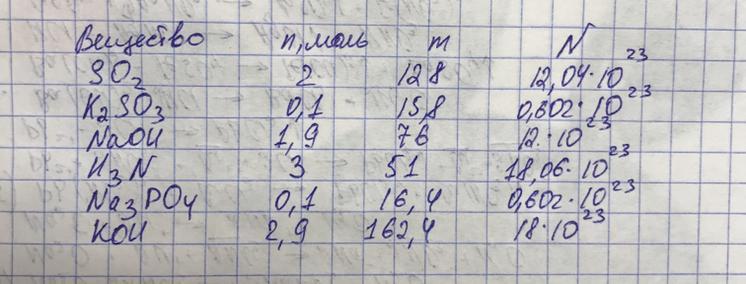 Вещество n, моль m N
SO₂ 2 128 12,04·10²³
K₂SO₃ 0,1 15,8 0,602·10²³
NaOH 1,9 76 12·10²³
H₃N 3 51 18,06·10²³
Na₃PO₄ 0,1 16,4 0,602·10²³
KOH 2,9 162,4 18·10²³